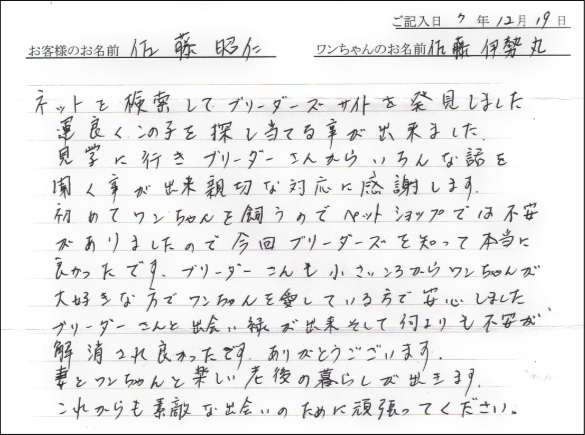 ご記入日 7 年 12 月 19 日
お客様のお名前 佐藤昭仁 ワンちゃんのお名前 佐藤伊勢丸
ネットを検索してブリーダーズサイトを発見しました
運良くこの子を探し当てる事が出来ました.
見学に行きブリーダーさんからいろんな話を
聞く事が出来親切な対応に感謝します.
初めてワンちゃんを飼うのでペットショップでは不安
がありましたので今回ブリーダーズを知って本当に
良かったです. ブリーダーさんも小さいころからワンちゃんが
大好きな方でワンちゃんを愛している方で安心しました
ブリーダーさんと出会い縁が出来そして何よりも不安が
解消され良かったです. ありがとうございます.
妻とワンちゃんと楽しい老後の暮らしが出きます.
これからも素敵な出会いのために頑張ってください。